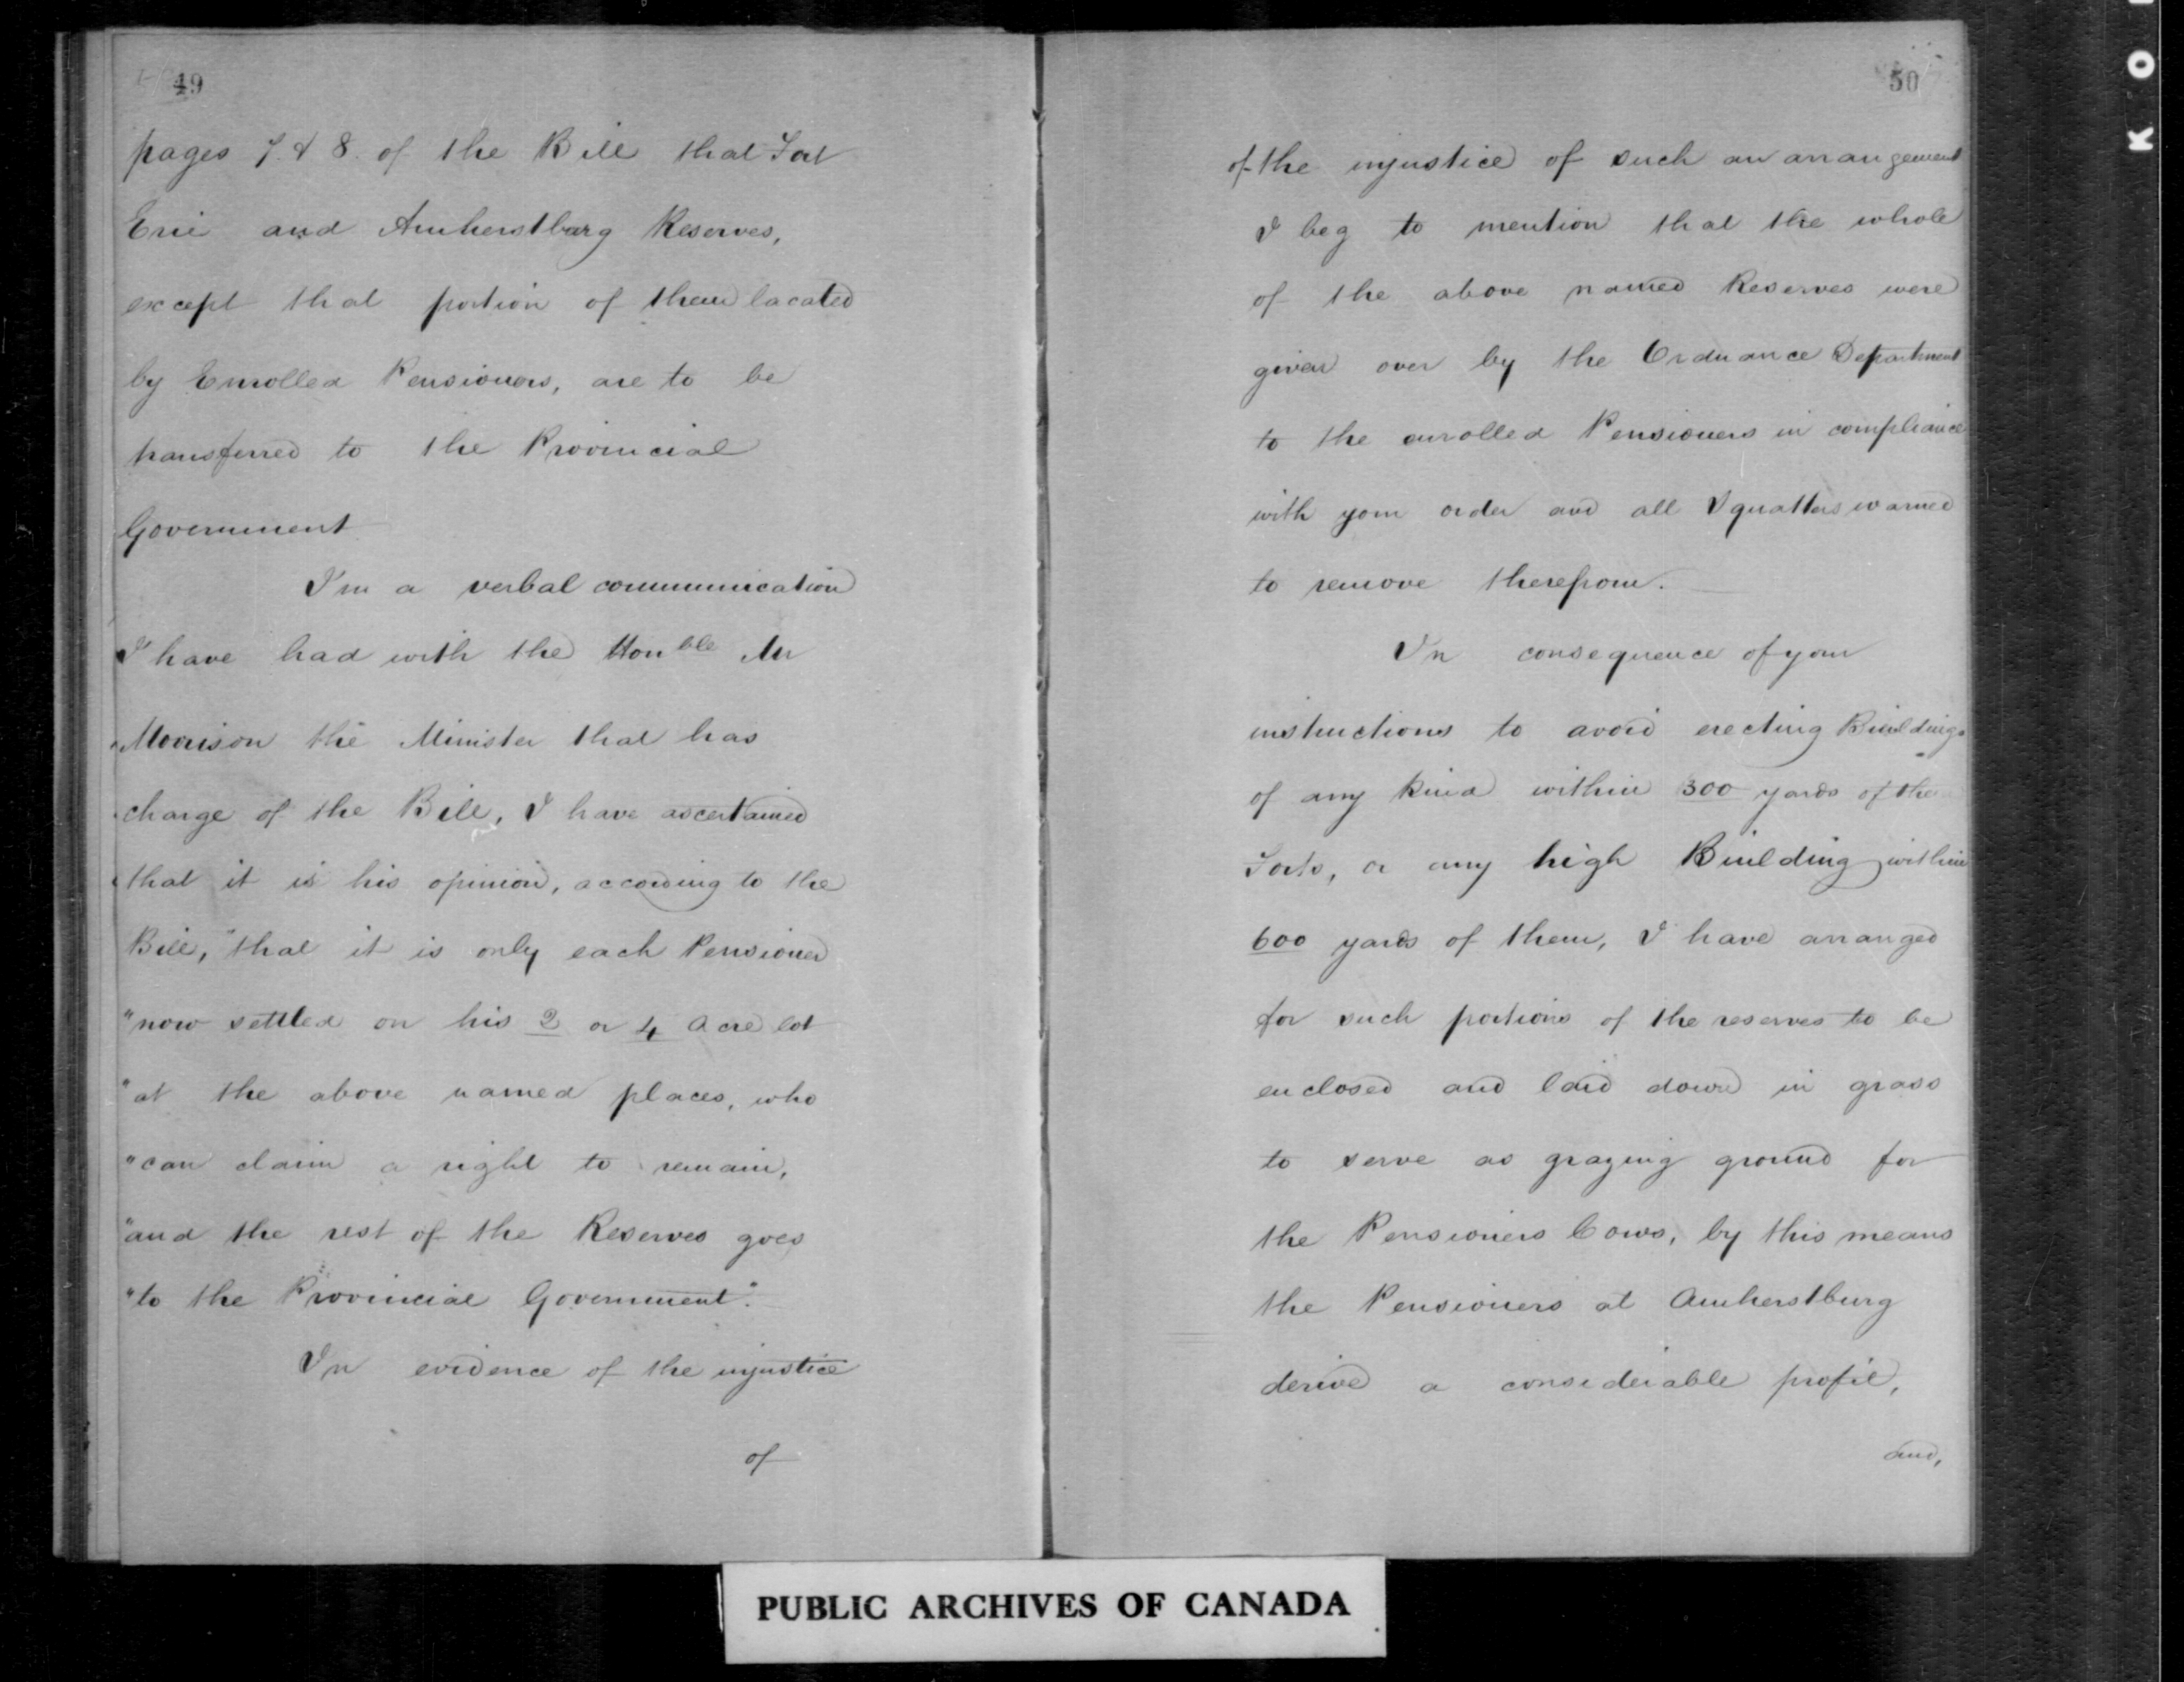 49
pages 7 & 8 of the Bill that Fort
Erie and Amherstburg Reserves,
except that portion of them located
by Enrolled Pensioners, are to be
transferred to the Provincial
Government
I'm a verbal communication
I have had with the Honble Mr
Morrison the Minister that has
charge of the Bill, I have ascertained
that it is his opinion, according to the
Bill, "that it is only each Pensioner
"now settled on his 2 or 4 Acre lot
"at the above named places, who
"can claim a right to remain,
"and the rest of the Reserves goes
"to the Provincial Government".
In evidence of the injustice
of
50
of the injustice of such an arrangement
I beg to mention that the whole
of the above named Reserves were
given over by the Ordnance Department
to the enrolled Pensioners in compliance
with your order and all Squatters warned
to remove therefrom.
In consequence of your
instructions to avoid erecting Buildings
of any kind within 300 yards of the
Forts, or any high Building within
600 yards of them, I have arranged
for such portions of the reserves to be
enclosed and laid down in grass
to serve as grazing ground for
the Pensioners Cows, by this means
the Pensioners at Amherstburg
derive a considerable profit,
and,
PUBLIC ARCHIVES OF CANADA
K O